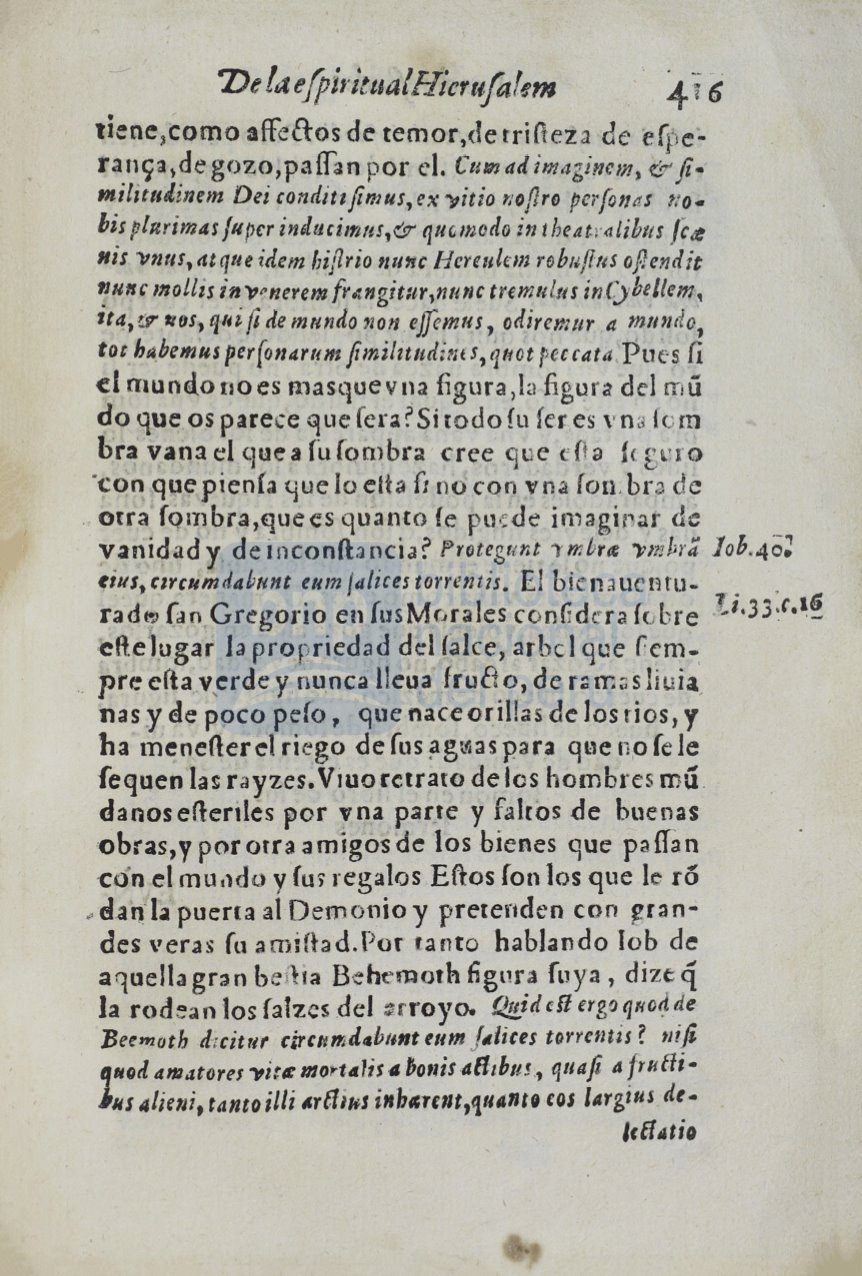 De la eſpiritual Hieruſalem 416
tiene, como affectos de temor, de triſteza de eſpe-
rança, de gozo, paſſan por el. Cum ad imaginem, & ſi-
militudinem Dei conditi ſimus, ex vitio noſtro perſonas no-
bis plurimas ſuper inducimus, & quomodo in theatralibus ſcæ
nis vnus, atque idem hiſtrio nunc Herculem robuſtus oſtendit
nunc mollis in venerem frangitur, nunc tremulus in Cybellem,
ita, & nos, qui ſi de mundo non eſſemus, odiremur a mundo,
tot habemus perſonarum ſimilitudines, quot peccata Pues ſi
el mundo no es mas que vna figura, la figura del mũ
do que os parece que ſera? Si todo ſu ſer es vna ſom
bra vana el que a ſu ſombra cree que eſta ſeguro
con que pienſa que lo eſta ſi no con vna ſombra de
otra ſombra, que es quanto ſe puede imaginar de
vanidad y de inconſtancia? Protegunt vmbræ vmbrã Iob. 40.
eius, circumdabunt eum ſalices torrentis. El bienauentu-
rado ſan Gregorio en ſus Morales conſidera ſobre Li. 33. c. 16
eſte lugar la propriedad del ſalce, arbol que ſiem-
pre eſta verde y nunca lleua fructo, de ramas liuia
nas y de poco peſo, que nace orillas de los rios, y
ha meneſter el riego de ſus aguas para que no ſe le
ſequen las rayzes. Viuo retrato de los hombres mũ
danos eſteriles por vna parte y faltos de buenas
obras, y por otra amigos de los bienes que paſſan
con el mundo y ſus regalos Eſtos ſon los que le rõ
dan la puerta al Demonio y pretenden con gran-
des veras ſu amiſtad. Por tanto hablando Iob de
aquella gran beſtia Behemoth figura ſuya, dize q̃
la rodean los ſalzes del arroyo. Quid eſt ergo quod de
Beemoth dicitur circumdabunt eum ſalices torrentis? niſi
quod amatores vitæ mortalis a bonis actibus, quaſi a fructi-
bus alieni, tanto illi arctius inhærent, quanto eos largius de-
lectatio